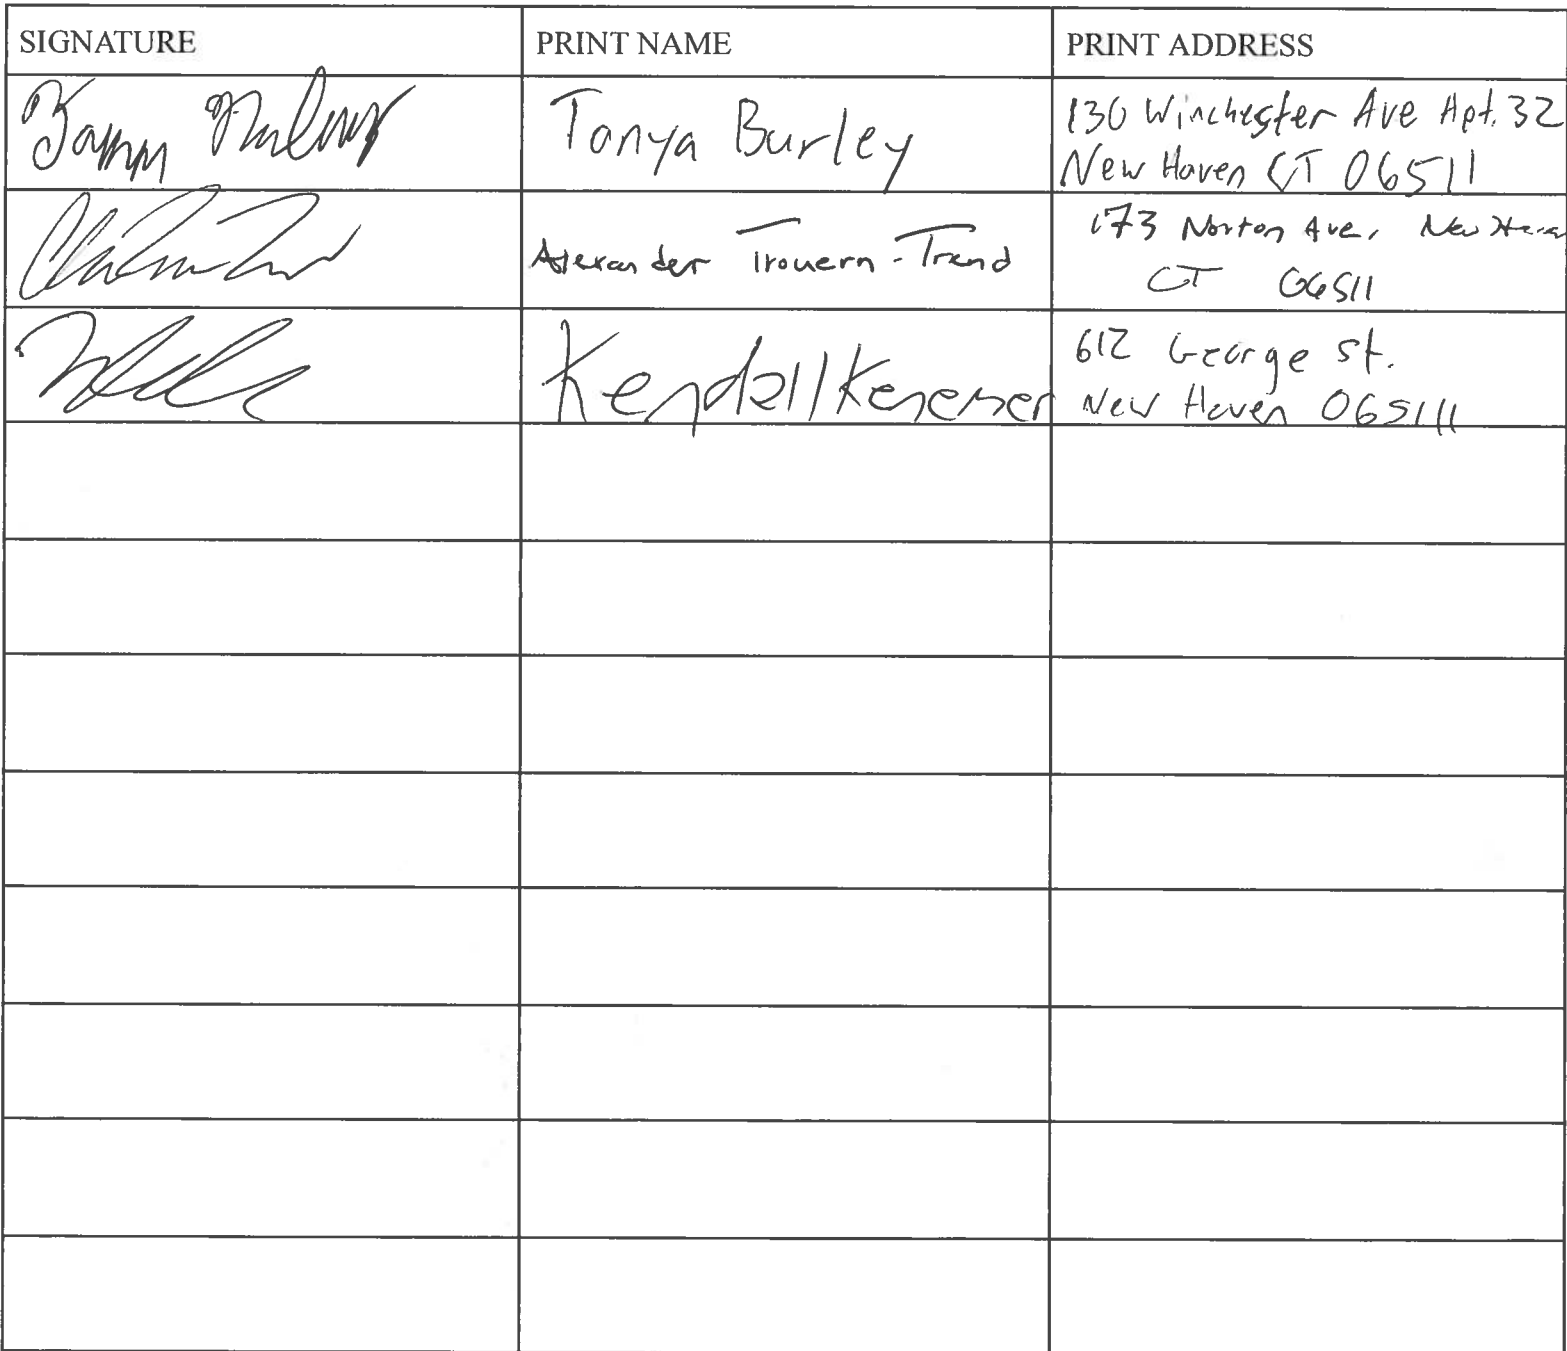 SIGNATURE PRINT NAME PRINT ADDRESS
Tanya Burley 130 Winchester Ave Apt. 32
New Haven CT 06511
Alexander Trouern-Trend 173 Norton Ave, New Haven
CT 06511
Kendall 612 George St.
New Haven 065111